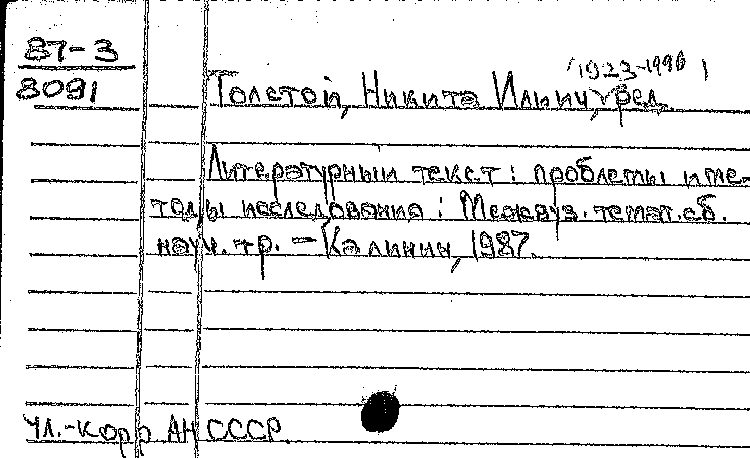 87-3
8091
(1923-1996)
Толстой, Никита Ильич, ред.
Литературный текст: проблемы и ме-
тоды исследования: Межвуз. темат. сб.
науч. тр. – Калинин, 1987.
Чл.-корр АН СССР.